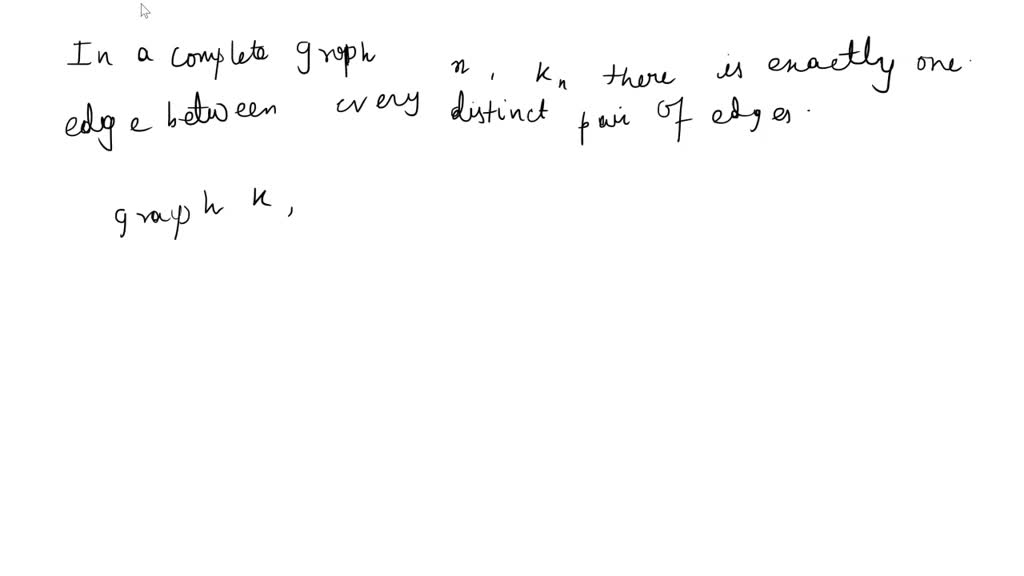 In a complete graph n, Kn there is exactly one
edge between every distinct pair of edges.
graph K,